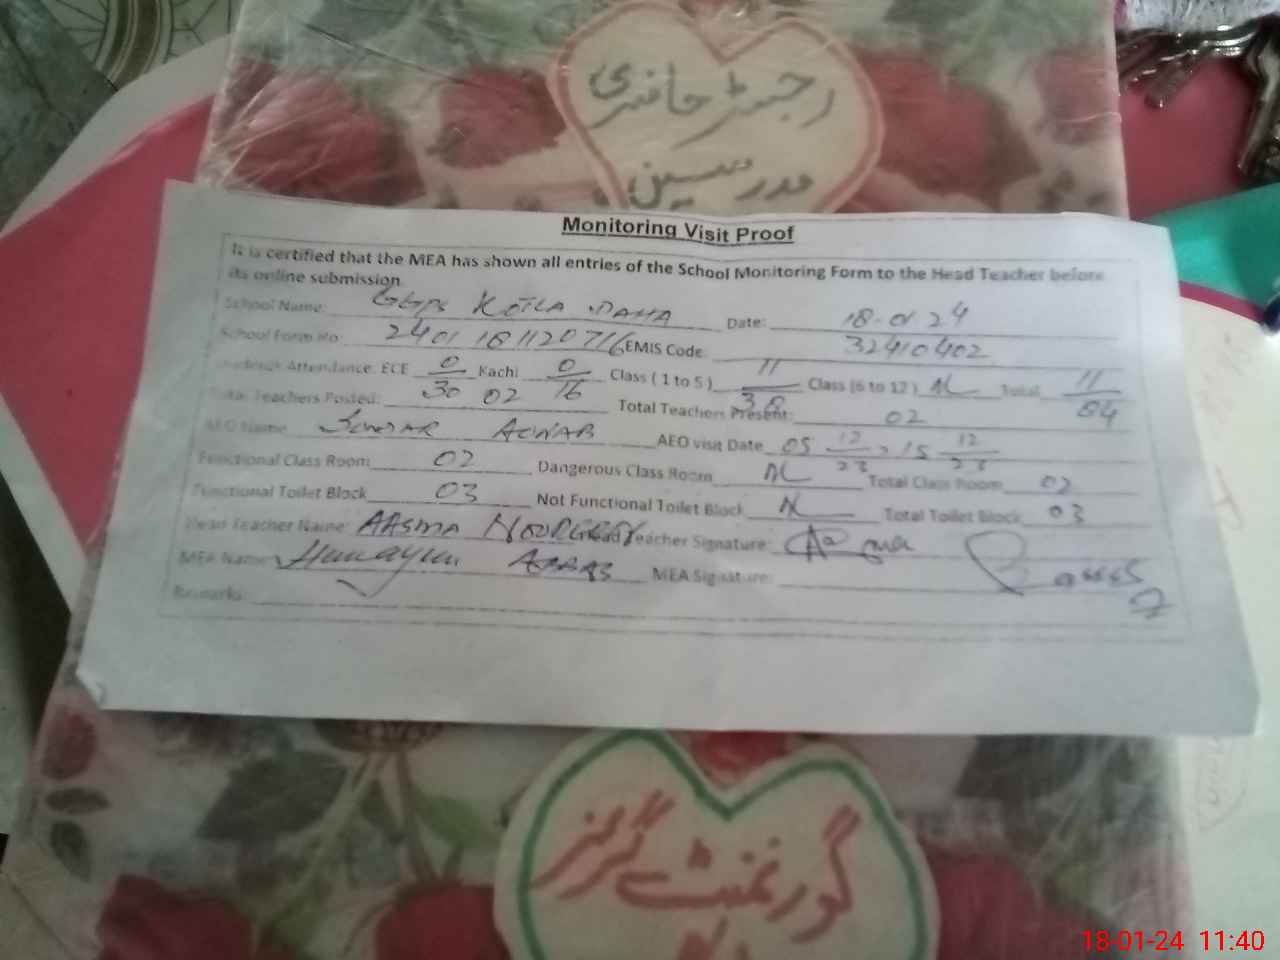 رجسٹر حاضری
مدرسین
Monitoring Visit Proof
It is certified that the MEA has shown all entries of the School Monitoring Form to the Head Teacher before
its online submission.
School Name: GGPS KOTLA DAHA Date: 18-01-24
School Form No: 2401181120716 EMIS Code: 32410402
Students Attendance: ECE 0/30 Kachi 0/16 Class (1 to 5) 11/38 Class (6 to 12) NL Total 11/84
Total Teachers Posted: 02 Total Teachers Present: 02
AEO Name: AEO visit Date 05 12/23, 15 12/23
Functional Class Room 02 Dangerous Class Room NL Total Class Room 02
Functional Toilet Block 03 Not Functional Toilet Block N Total Toilet Block 03
Head Teacher Name: AASMA Head Teacher Signature: Aasma
MEA Name: Humayun ABBAS MEA Signature:
Remarks:
گورنمنٹ گرلز
18-01-24 11:40